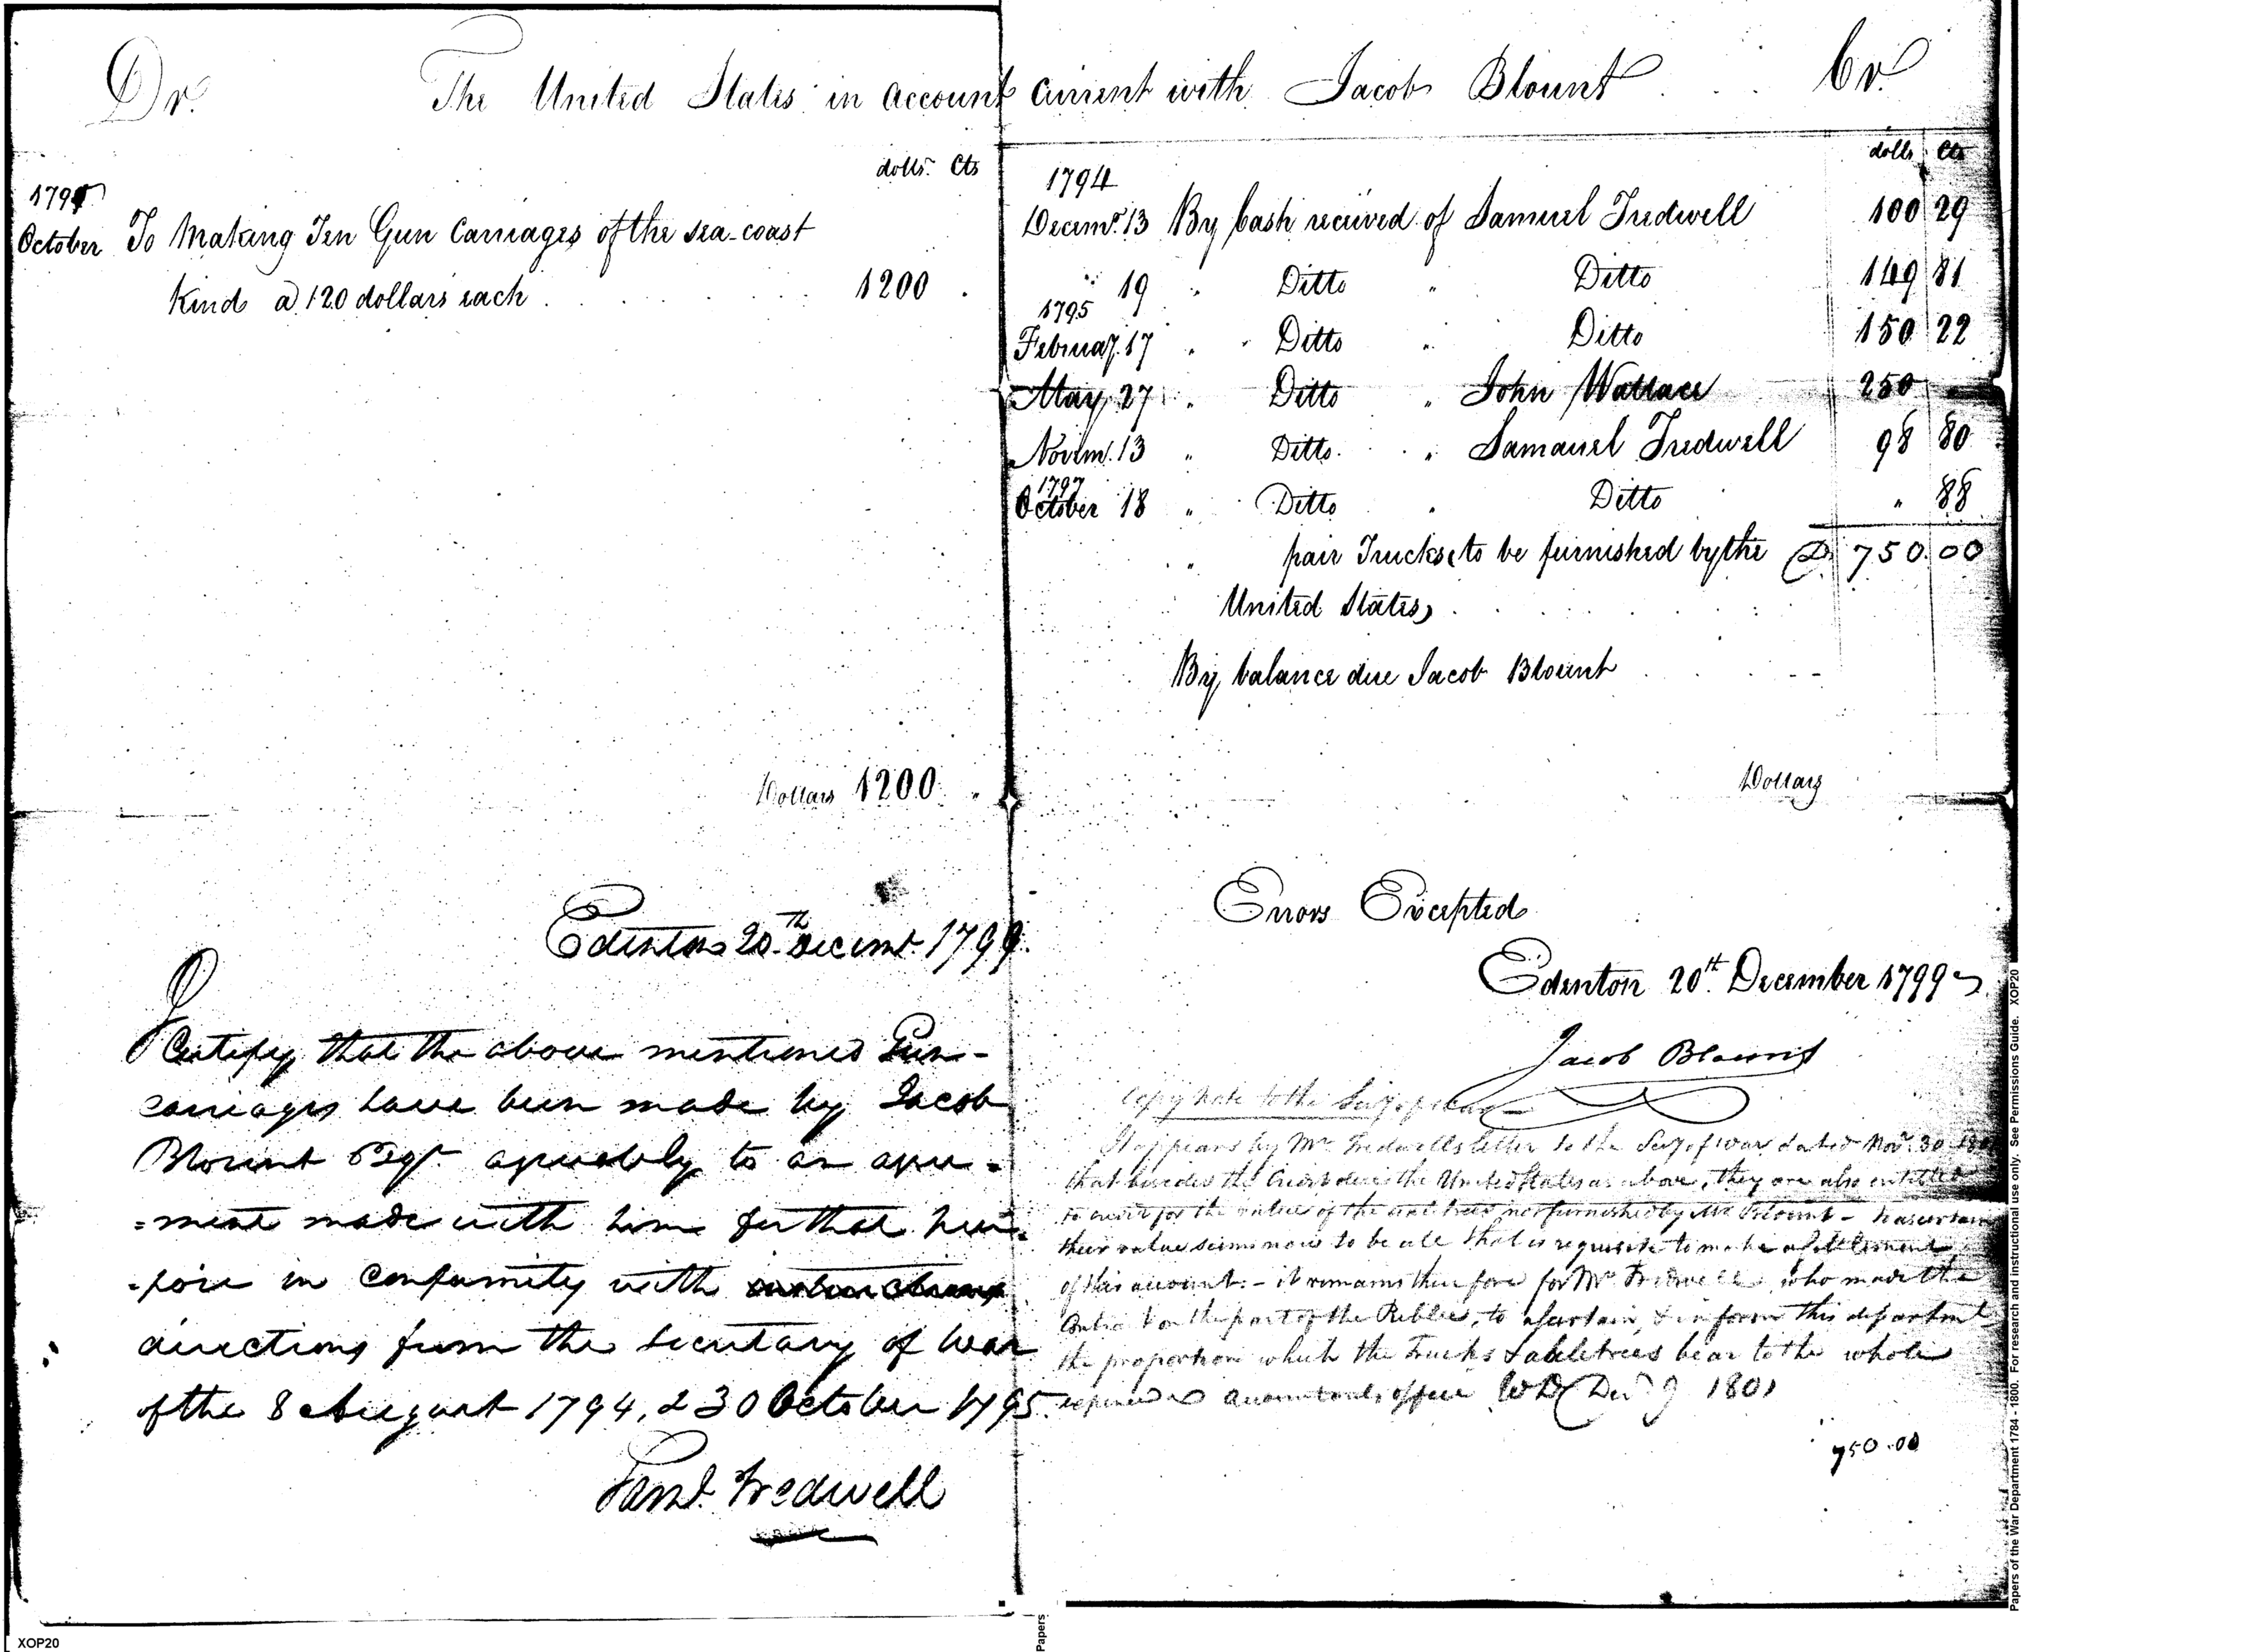 Dr. The United States in account current with Jacob Blount Cr.
dolls. Cts
1795
October To Making Ten Gun Carriages of the sea-coast
Kind @ 120 dollars each 1200
Dollars 1200
Edenton 20th Decemr. 1799.
I Certify that the above mentioned Gun-
carriages have been made by Jacob
Blount Esqr. agreeably to an agree-
=ment made with him for that pur-
-pose in conformity with
directions from the Secretary of War
of the 8 August 1794, & 30 October 1795.
Saml. Tredwell
dolls Cts
1794
Decemr. 13 By Cash received of Samuel Tredwell 100 29
" 19 " Ditto " Ditto 149 81
1795
Februay. 17 " Ditto " Ditto 150 22
May 27 " Ditto " John Wallace 250
Novem. 13 " Ditto " Samauel Tredwell 98 80
1797
October 18 " Ditto " Ditto " 88
" pair Trucks to be furnished by the D. 750.00
United States
By balance due Jacob Blount
Dollars
Errors Excepted
Edenton 20th. December 1799
Jacob Blount
Copy note to the Secy. of War
It appears by Mr. Tredwells letter to the Secy of War dated Novr. 30
that besides the Credit due the United States as above, they are also entitled
to credit for the value of the axletrees not furnished by Mr. Blount - to ascertain
their value seems now to be all that is requisite to make a settlement
of this account. - it remains therefore for Mr. Tredwell who made the
Contract on the part of the Public, to ascertain, & inform this department
the proportion which the Trucks & axletrees bear to the whole
Accountants office WD Decr. 9 1801
750.00
Papers of the War Department 1784 - 1800. For research and instructional use only. See Permissions Guide. XOP20
Papers
XOP20